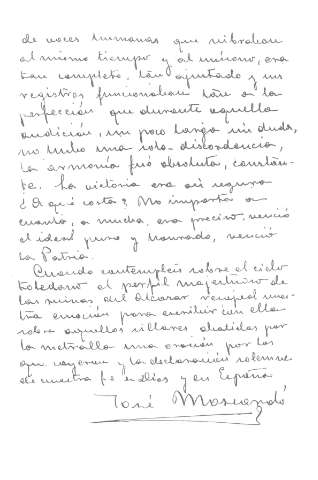 de voces humanas que vibraban
al mismo tiempo y al unísono, era
tan completo, tan ajustado y sus
registros funcionaban tan a la
perfección que durante aquella
audición, un poco larga sin duda,
no hubo una sola discordancia,
la armonía fué absoluta, constan-
te. La victoria era así segura
¿A qué costa? No importa a
cuanto, a mucha, era preciso, venció
el ideal puro y honrado, venció
la Patria.
Cuando contempleis sobre el cielo
toledano el perfil majestuoso de
las ruinas del Alcázar recoged vues-
tra emoción para escribir con ella
sobre aquellos sillares abatidos por
la metralla una oración por los
que cayeron y la declaración solemne
de nuestra fe en Dios y en España
José Moscardó